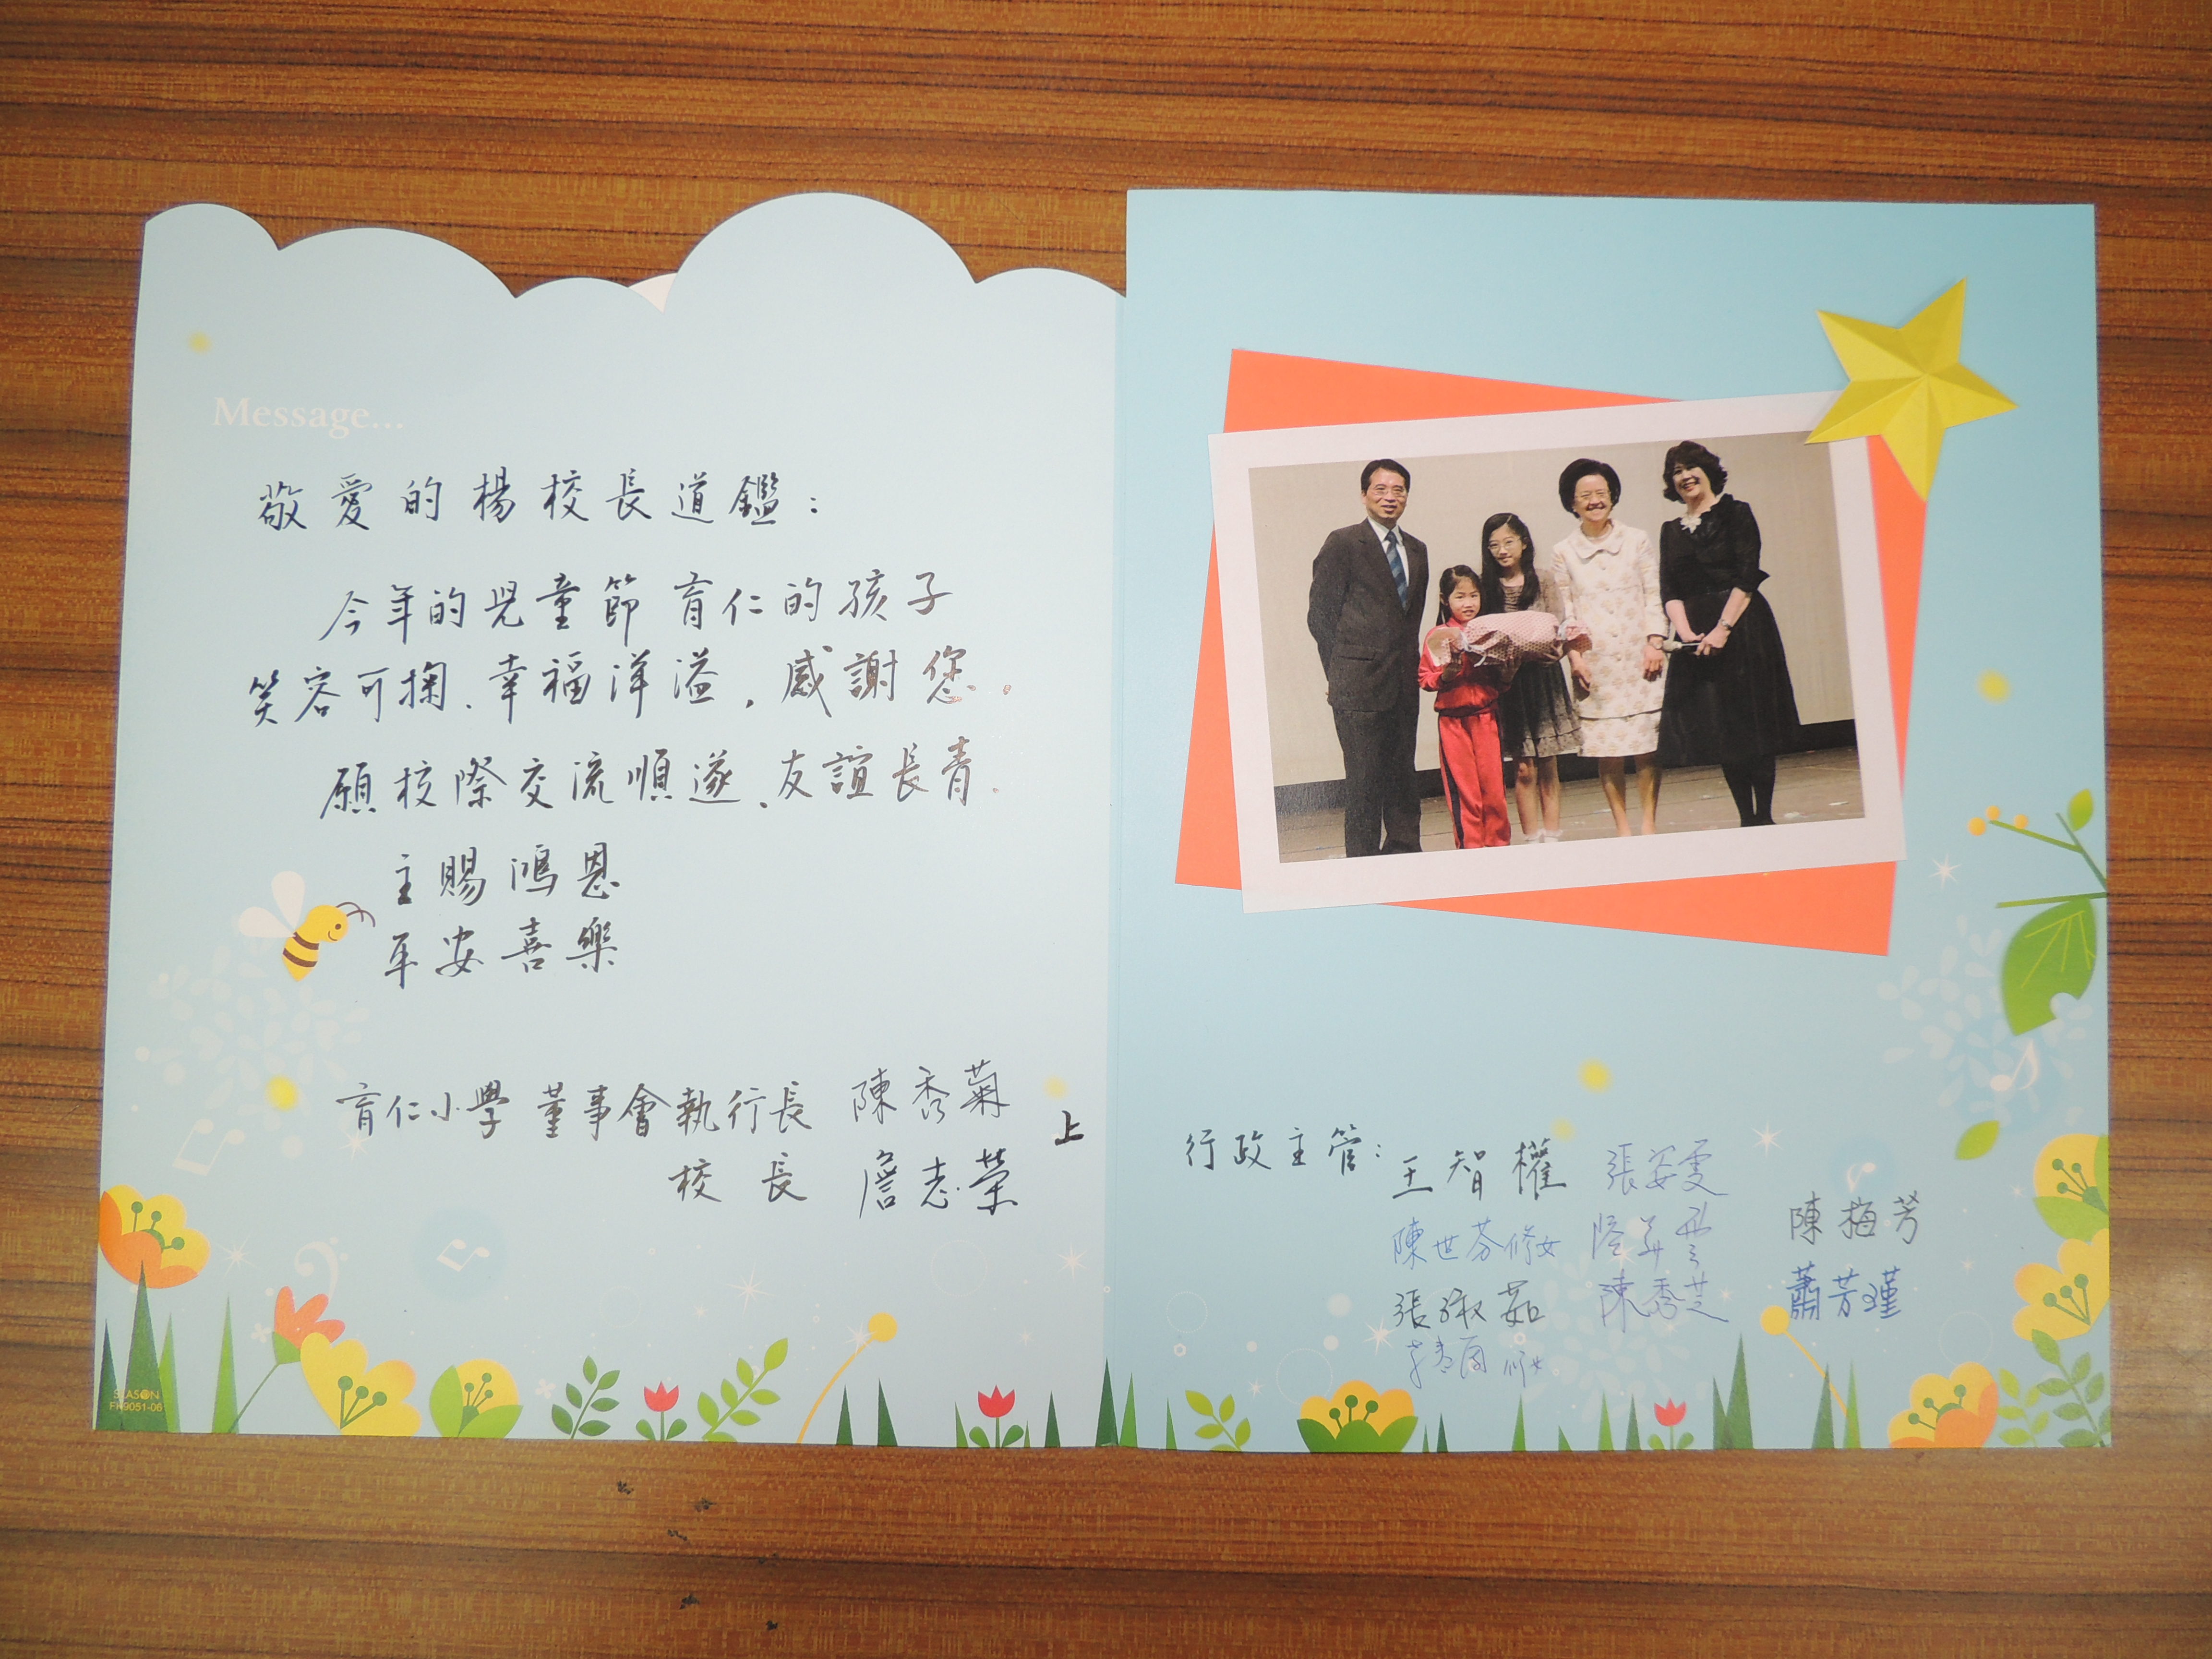 Message...
敬愛的楊校長道鑑：
今年的兒童節育仁的孩子
笑容可掬、幸福洋溢，感謝您。
願校際交流順遂、友誼長青。
主賜鴻恩
平安喜樂
育仁小學 董事會執行長 陳秀菊
校長 詹志榮 上
SEASON
FK9051-06
行政主管：王智權 張安雯
陳世芬修女
陳梅芳
張淑茹 陳秀芝 蕭芳瑾
修女